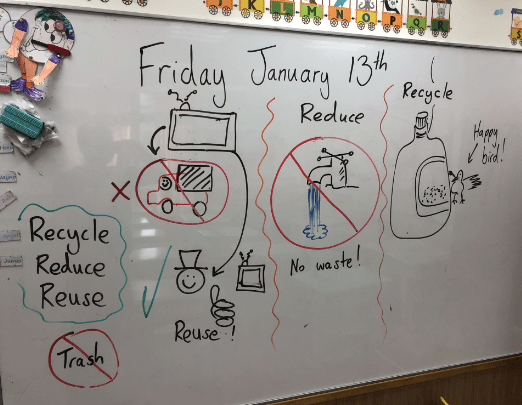 J K L M N O P Q R
Friday January 13th
Reduce
Recycle
Happy bird!
Recycle
Reduce
Reuse
No waste!
Reuse!
Trash